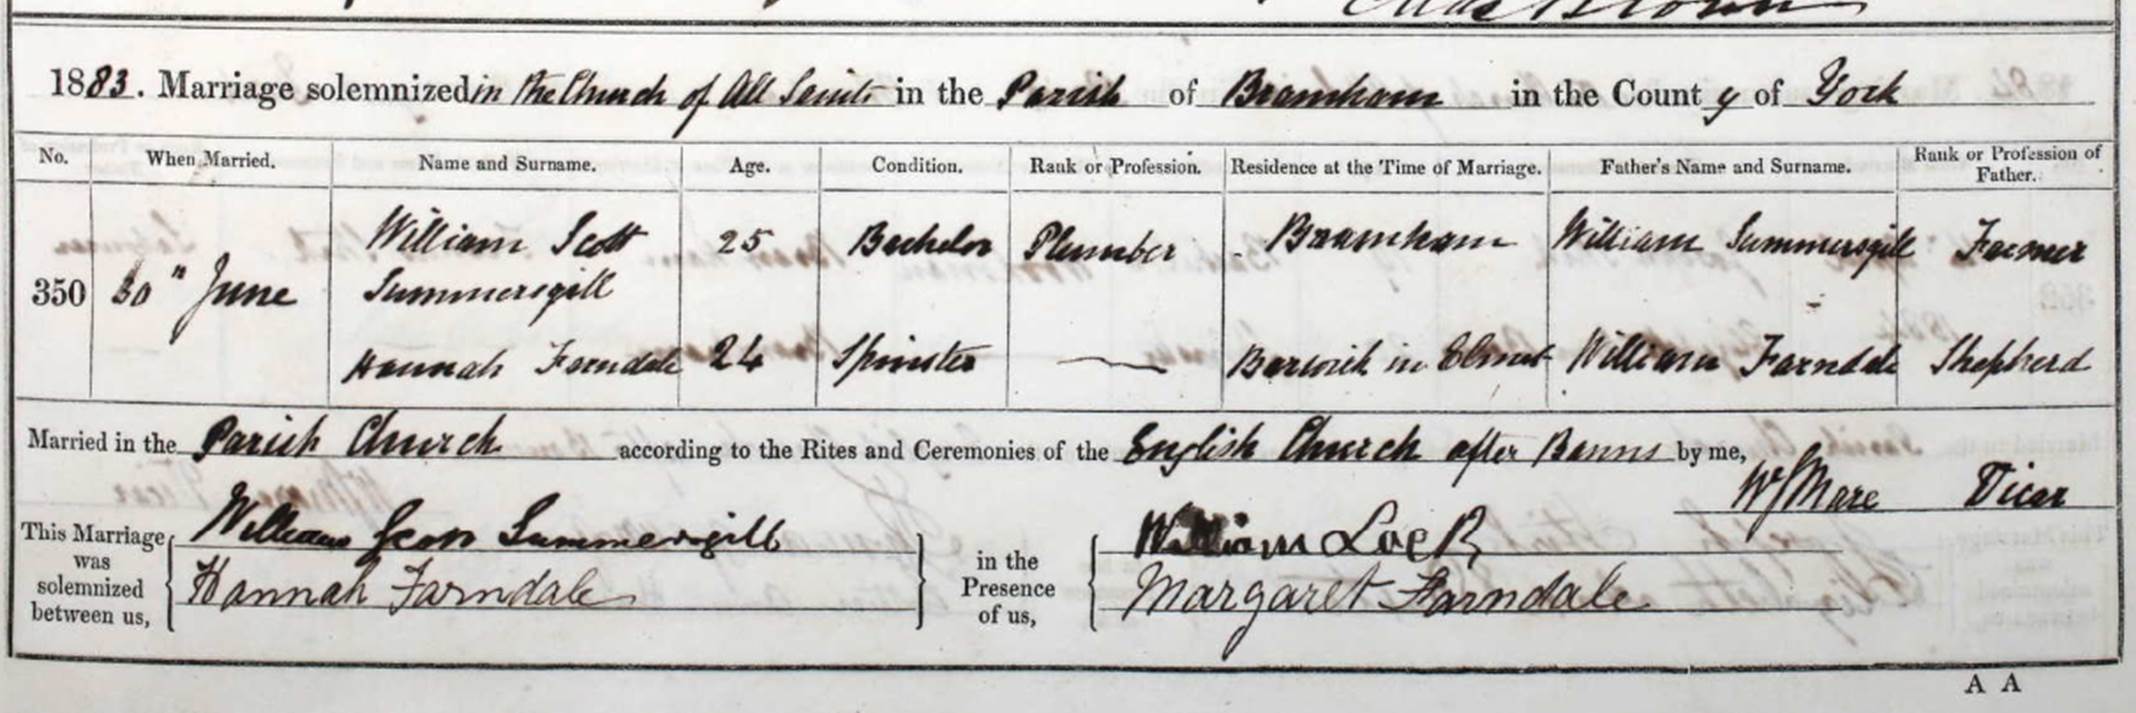 Brown
1883. Marriage solemnized in the Church of All Saints in the Parish of Bramham in the County of York
No. When Married. Name and Surname. Age. Condition. Rank or Profession. Residence at the Time of Marriage. Father's Name and Surname. Rank or Profession of Father.
William Scott 25 Bachelor Plumber Bramham William Summersgill Farmer
350 30" June Summersgill
Hannah Farndale 24 Spinster — Barwick in Elmet William Farndale Shepherd
Married in the Parish Church according to the Rites and Ceremonies of the English Church after Banns by me,
Vicar
This Marriage was solemnized between us,
William Scott Summersgill
Hannah Farndale
in the Presence of us,
William
Margaret Farndale
A A